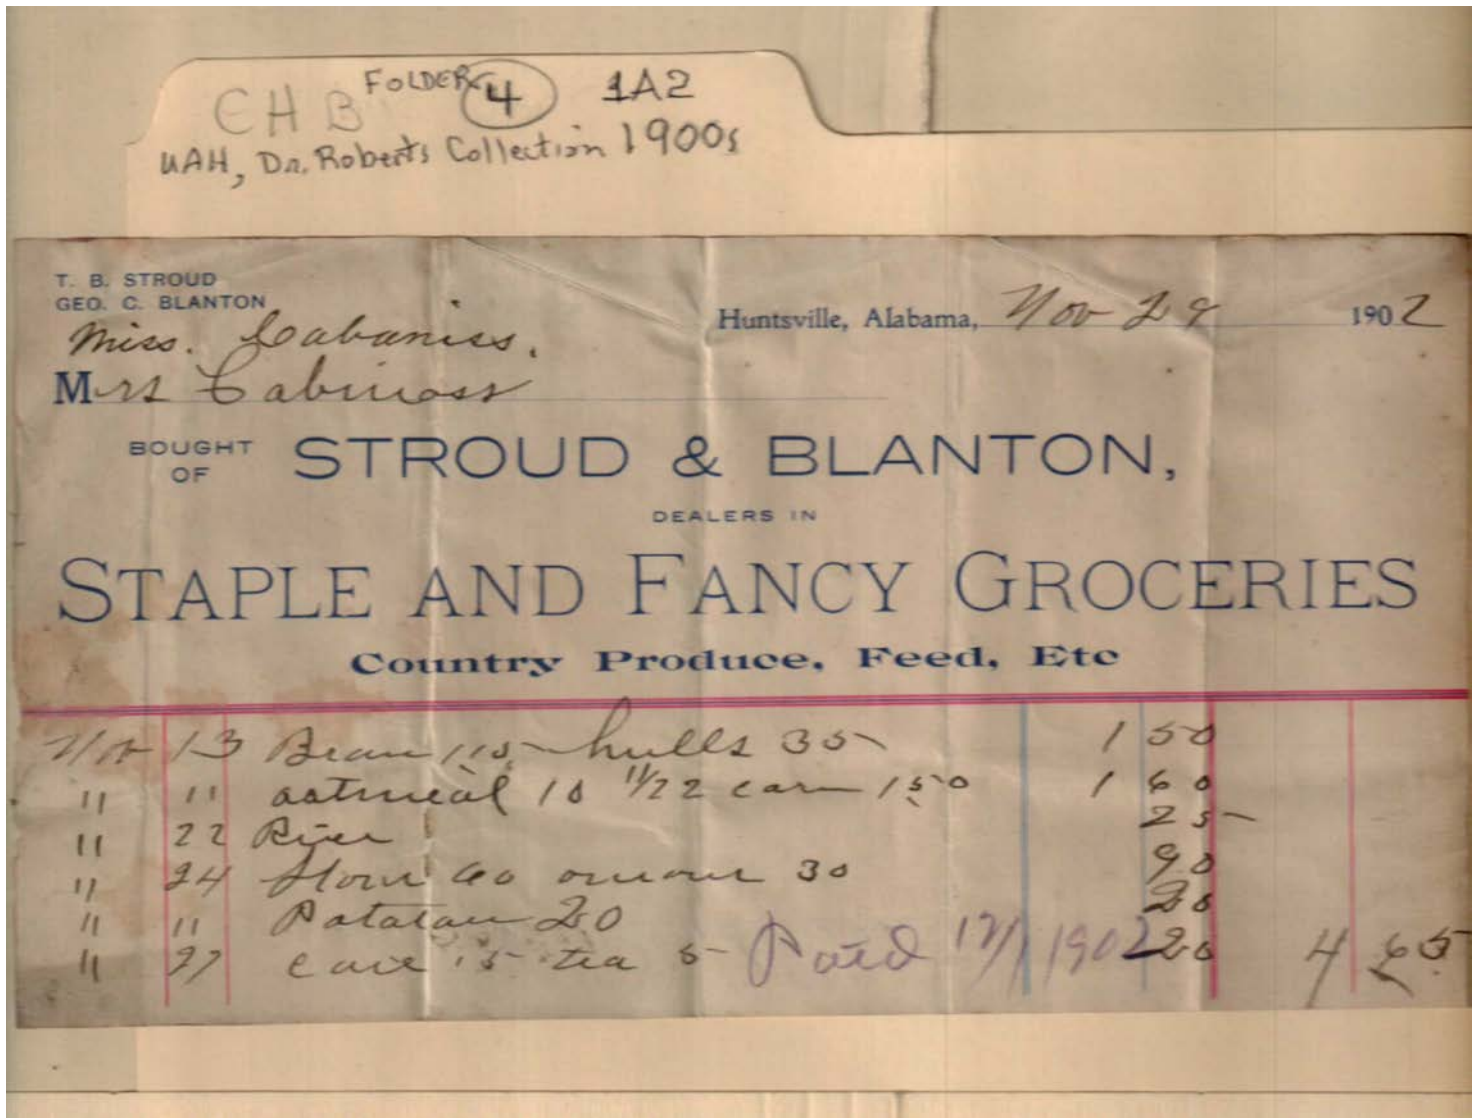 FOLDER 4 1A2
CHB
UAH, Dr. Roberts Collection 1900s
T. B. STROUD
GEO. C. BLANTON
Huntsville, Alabama, Nov 29 1902
Miss. Cabaniss.
Mrs Cabiness
BOUGHT OF STROUD & BLANTON,
DEALERS IN
STAPLE AND FANCY GROCERIES
Country Produce, Feed, Etc
Nov 13 Bran 115 hulls 35 1 50
" " oatmeal 10 11/22 corn 150 1 60
" 22 25
" 24 flour 60 30 90
" " Potatoes 20 20
" 27 15 tea 5 20 4 65
Paid 12/1 1902